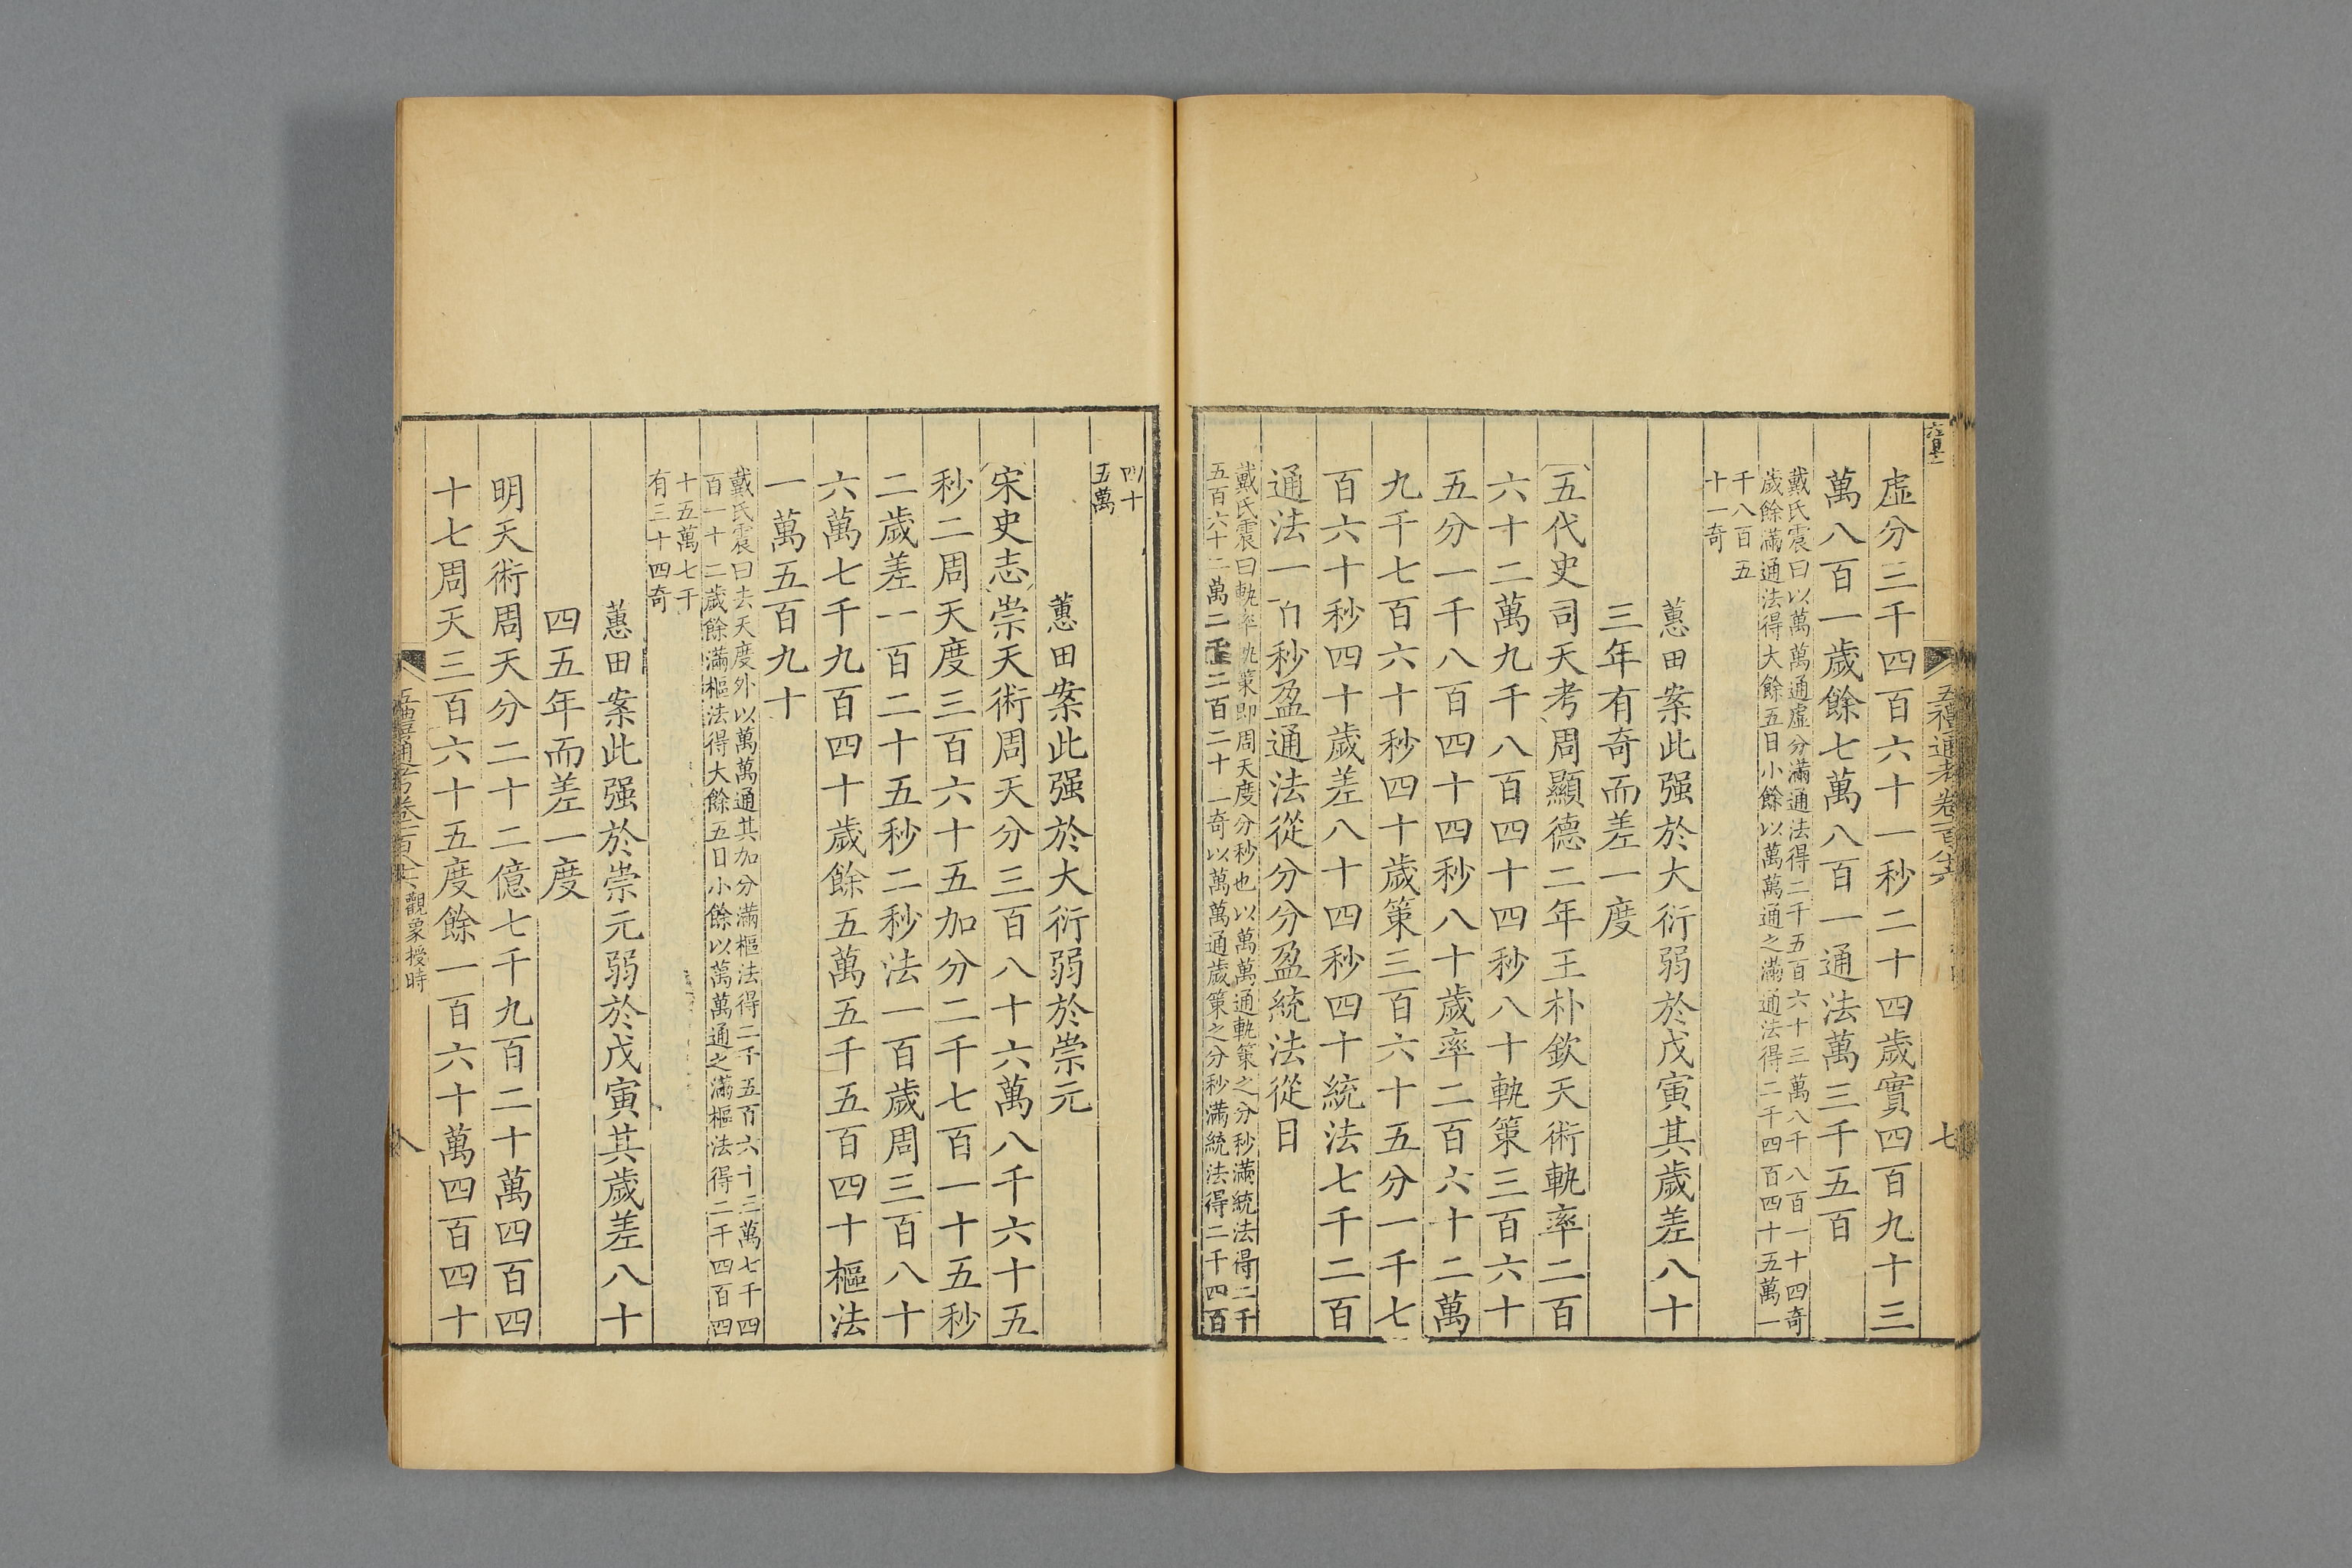 虛分三千四百六十一秒二十四歲實四百九十三
萬八百一歲餘七萬八百一通法萬三千五百
戴氏震曰以萬萬通虛分滿通法得二千五百六十三萬八千八百一十四奇
歲餘滿通法得大餘五日小餘以萬萬通之滿通法得二千四百四十五萬一
千八百五
十一奇
蕙田案此强於大衍弱於戊寅其歲差八十
三年有奇而差一度
五代史司天考周顯德二年王朴欽天術軌率二百
六十二萬九千八百四十四秒八十軌策三百六十
五分一千八百四十四秒八十歲率二百六十二萬
九千七百六十秒四十歲策三百六十五分一千七
百六十秒四十歲差八十四秒四十統法七千二百
通法一百秒盈通法從分分盈統法從日
戴氏震曰軌率軌策即周天度分秒也以萬萬通軌策之分秒滿統法得二千
五百六十二萬二千二百二十一奇以萬萬通歲策之分秒滿統法得二千四百
五禮通考卷一百八十六
七
四十
五萬
蕙田案此强於大衍弱於崇元
宋史志崇天術周天分三百八十六萬八千六十五
秒二周天度三百六十五加分二千七百一十五秒
二歲差一百二十五秒二秒法一百歲周三百八十
六萬七千九百四十歲餘五萬五千五百四十樞法
一萬五百九十
戴氏震曰去天度外以萬萬通其加分滿樞法得二千五百六十三萬七千四
百一十二歲餘滿樞法得大餘五日小餘以萬萬通之滿樞法得二千四百四
十五萬七千
有三十四奇
蕙田案此强於崇元弱於戊寅其歲差八十
四五年而差一度
明天術周天分二十二億七千九百二十萬四百四
十七周天三百六十五度餘一百六十萬四百四十
觀象授時
八